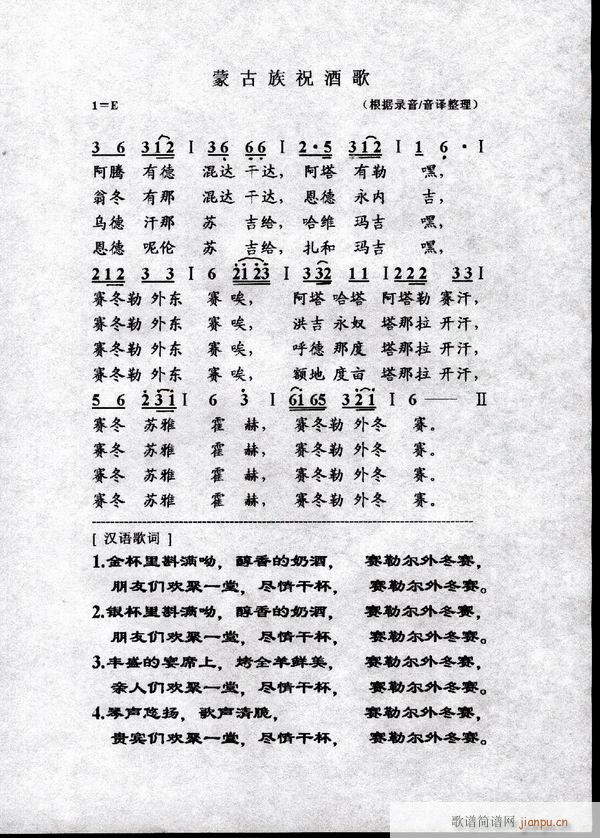 蒙古族祝酒歌
1=E （根据录音/音译整理）
3 6 312 | 36 66 | 2·5 312 | 1 6· |
阿腾 有德 混达 干达， 阿塔 有勒 嘿，
翁冬 有那 混达 干达， 恩德 永内 吉，
乌德 汗那 苏 吉给， 哈维 玛吉 嘿，
恩德 呢伦 苏 吉给， 扎和 玛吉 嘿，
212 3 3 | 6 2123 | 332 11 | 222 33 |
赛冬勒 外东 赛 唉， 阿塔 哈塔 阿塔勒 赛汗，
赛冬勒 外东 赛 唉， 洪吉 永奴 塔那拉 开汗，
赛冬勒 外东 赛 唉， 呼德 那度 塔那拉 开汗，
赛冬勒 外东 赛 唉， 额地 度亩 塔那拉 开汗，
5 6 231 | 6 3· | 6165 321 | 6 —— ||
赛冬 苏雅 霍 赫， 赛冬勒 外冬 赛。
赛冬 苏雅 霍 赫， 赛冬勒 外冬 赛。
赛冬 苏雅 霍 赫， 赛冬勒 外冬 赛。
赛冬 苏雅 霍 赫， 赛冬勒 外冬 赛。
[ 汉语歌词 ]
1.金杯里斟满呦， 醇香的奶酒， 赛勒尔外冬赛，
朋友们欢聚一堂， 尽情干杯， 赛勒尔外冬赛。
2.银杯里斟满呦， 醇香的奶酒， 赛勒尔外冬赛，
朋友们欢聚一堂， 尽情干杯， 赛勒尔外冬赛。
3.丰盛的宴席上， 烤全羊鲜美， 赛勒尔外冬赛，
亲人们欢聚一堂， 尽情干杯， 赛勒尔外冬赛。
4.琴声悠扬， 歌声清脆， 赛勒尔外冬赛，
贵宾们欢聚一堂， 尽情干杯， 赛勒尔外冬赛。
歌谱简谱网
jianpu.cn